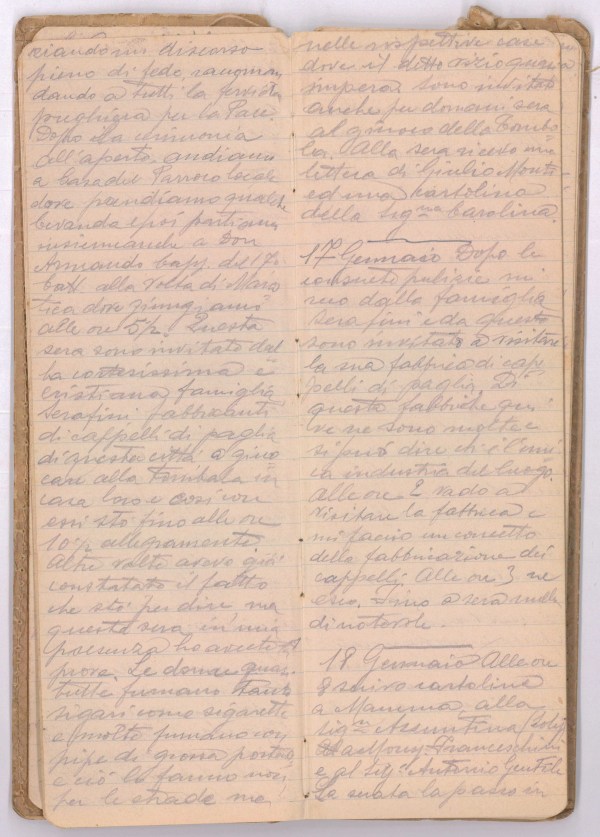 ziando un discorso
pieno di fede, raccoman
dando a tutti la fervida
preghiera per la Pace.
Dopo la cerimonia
all'aperto andiamo
a casa del Parroco locale
dove prendiamo qualche
bevanda e poi partiamo
insieme anche a Don
Armando Capp. del 17º
batt. alla volta di Maros
tica dove giungiamo
alle ore 5½. Questa
sera sono invitato dal
la cortesissima e
cristiana famiglia
Serafini fabbricanti
di cappelli di paglia
di questa città a gio
care alla Tombola in
casa loro e così con
essi stò fino alle ore
10½ allegramente.
Altre volte avevo già
constatato il fatto
che stò per dire ma
questa sera in mia
presenza ho avuto
prova. Le donne quasi
tutte fumano tanto
sigari come sigarette
e molte fumano con
pipe di grossa portata
e ciò lo fanno non
per le strade ma
nelle rispettive case
dove il detto vizio
impera. Sono invitato
anche per domani sera
al giuoco della Tombo
la. Alla sera ricevo una
lettera di Giulio
ed una cartolina
della Sigᵐᵃ Carolina.
17 Gennaio Dopo le
consuete pulizie mi
reco dalla famiglia
Serafini e da questo
sono invitato a visitare
la sua fabbrica di cap
pelli di paglia. Di
queste fabbriche qui
ve ne sono molte e
si può dire ch'è l'uni
ca industria del luogo.
Alle ore 2 vado a
visitare la fabbrica e
mi faccio un concetto
della fabbricazione dei
cappelli. Alle ore 3 ne
esco. Fino a sera nulla
di notevole.
18 Gennaio Alle ore
8 scrivo cartoline
a Mamma, alla
Sigᵐᵃ Assuntina
a Mons. Franceschini
e al Sig. Antonio Gentili
La serata la passo in